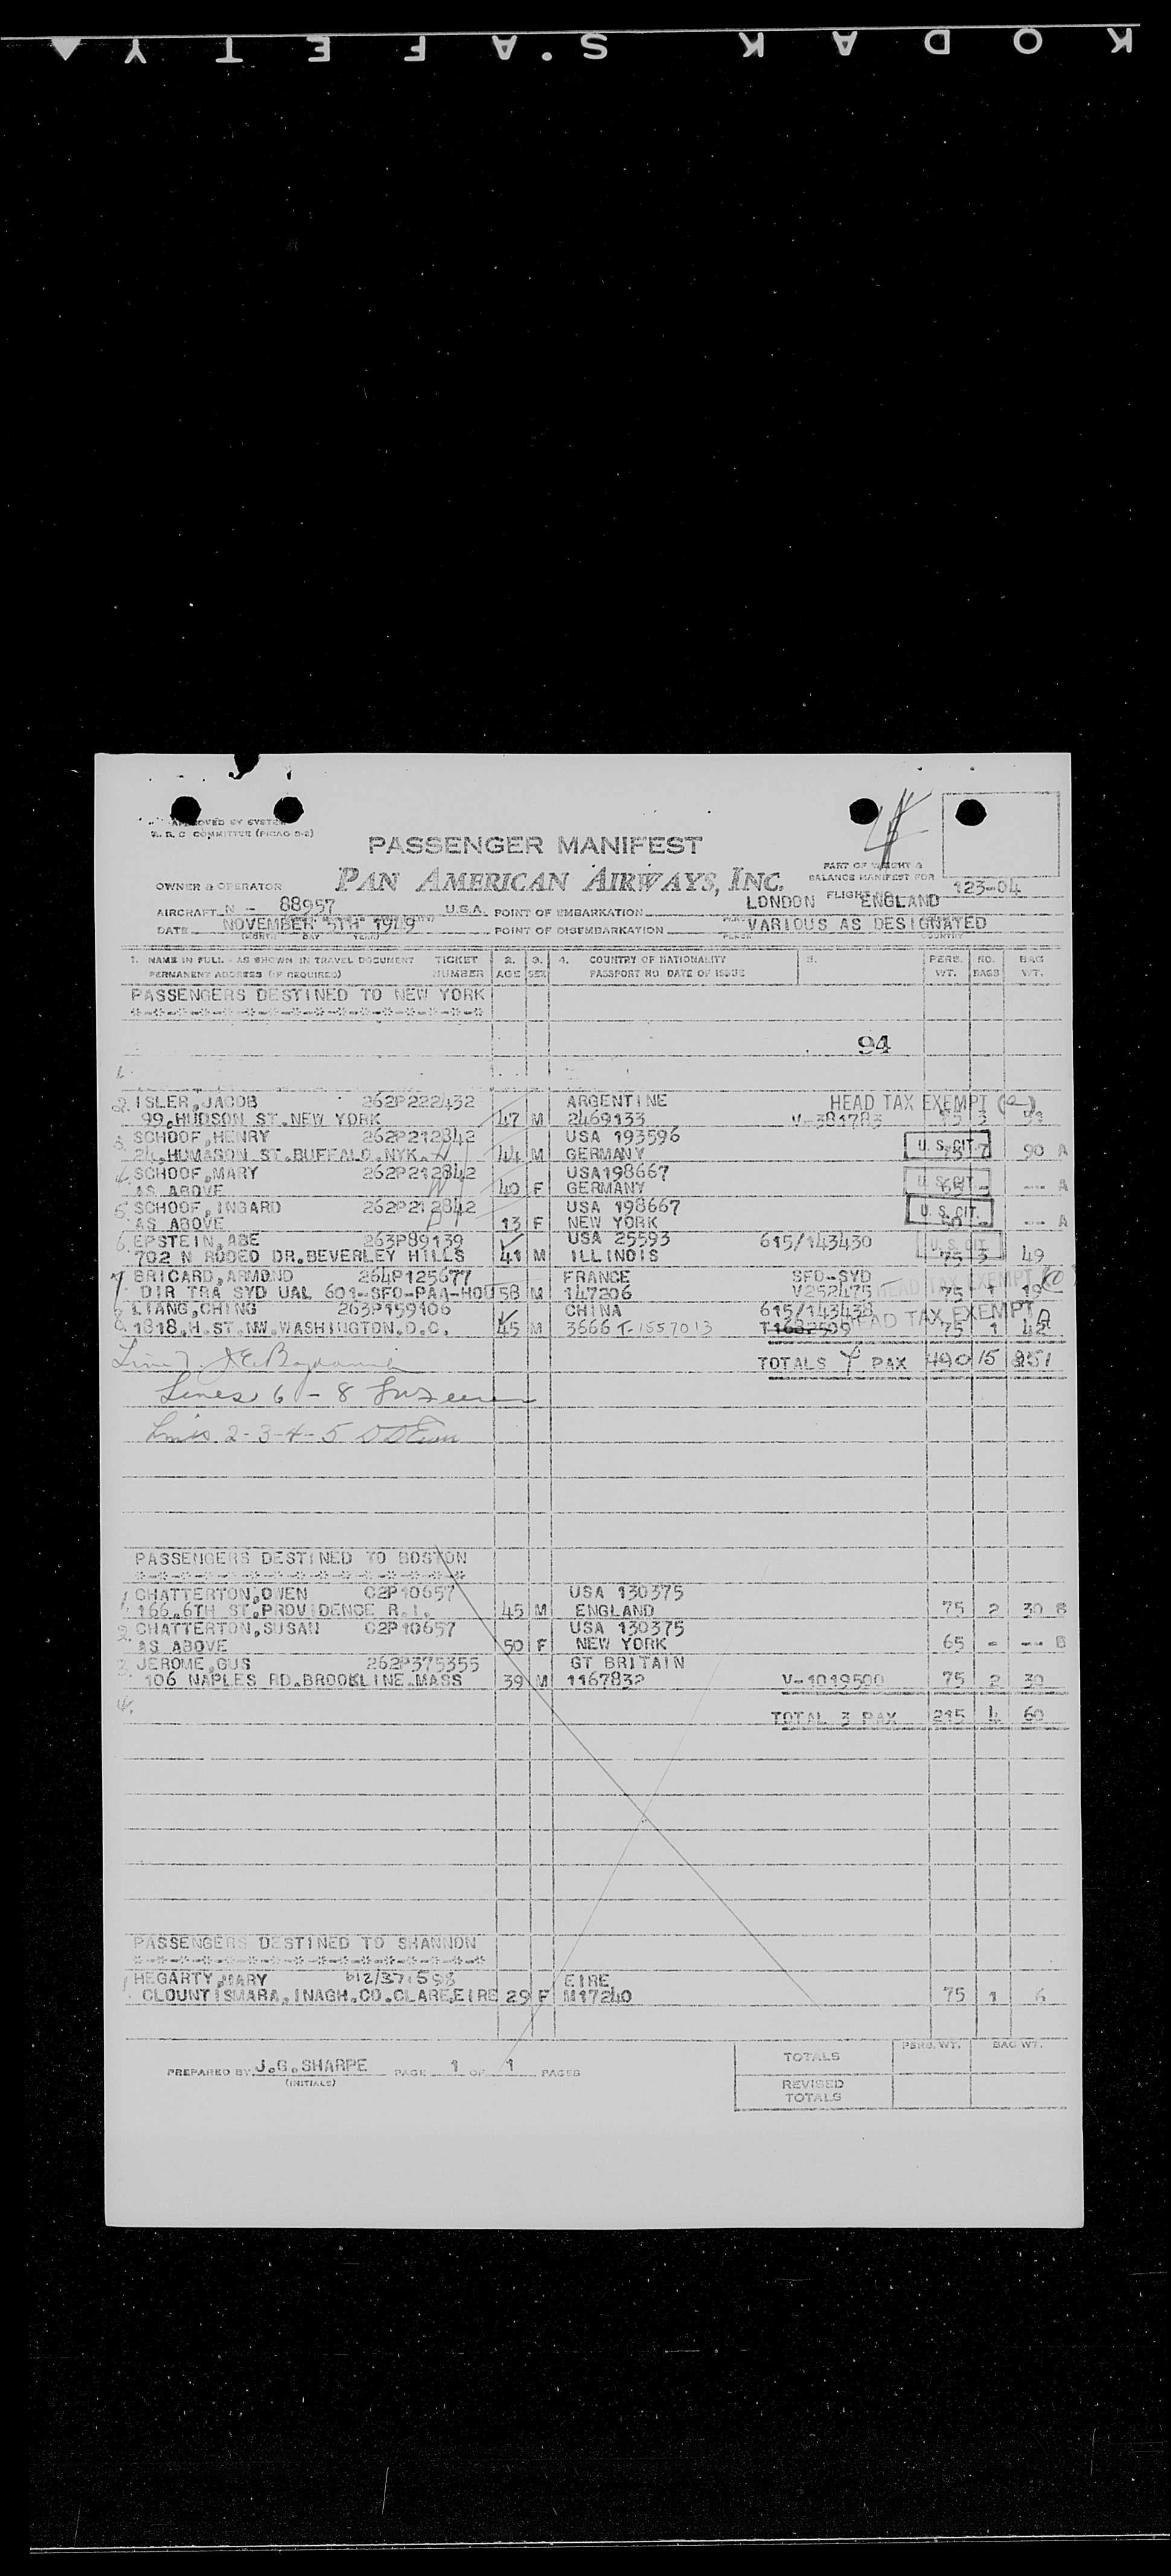 KODAK S'AFETY
APPROVED BY SYSTEM
COMMITTEE (PICAO D-2)
PASSENGER MANIFEST
PAN AMERICAN AIRWAYS, INC.
PART OF WEIGHT &
BALANCE MANIFEST FOR
OWNER & OPERATOR
FLIGHT NO. 123-04
AIRCRAFT N - 88957 U.S.A. POINT OF EMBARKATION LONDON ENGLAND
DATE NOVEMBER 5TH 1949 POINT OF DISEMBARKATION VARIOUS AS DESIGNATED
1. NAME IN FULL - AS SHOWN IN TRAVEL DOCUMENT TICKET 2. 3. 4. COUNTRY OF NATIONALITY 5. PERS. NO. BAG
PERMANENT ADDRESS (IF REQUIRED) NUMBER AGE SEX PASSPORT NO DATE OF ISSUE WT. BAGS WT.
PASSENGERS DESTINED TO NEW YORK
*-*-*-*-*-*-*-*-*-*-*-*-*-*-*-*
94
1.
2. ISLER,JACOB 262P222432 ARGENTINE HEAD TAX EXEMPT
99,HUDSON ST.NEW YORK 47 M 2469133 V-381783 75 3
3. SCHOOF,HENRY 262P212842 USA 193596 U. S. CIT.
24,HUMASON ST.BUFFALO.NYK. 44 M GERMANY 75 7 90 A
4. SCHOOF,MARY 262P212842 USA198667 U. S. CIT.
AS ABOVE 40 F GERMANY - --- A
5. SCHOOF,INGARD 262P212842 USA 198667 U. S. CIT.
AS ABOVE 13 F NEW YORK --- A
6. EPSTEIN,ABE 263P89139 USA 25593 615/143430 U. S. CIT.
702 N RODEO DR.BEVERLEY HILLS 41 M ILLINOIS 75 3 49
7 BRICARD,ARMOND 264P125677 FRANCE SFO-SYD
DIR TRA SYD UAL 601-SFO-PAA-HOU 58 M 147206 V252475 HEAD TAX EXEMPT 75 1 19
8. LIANG,CHING 263P159106 CHINA 615/143438 HEAD TAX EXEMPT
1818.H.ST.NW.WASHINGTON.D.C. 45 M 3666 T-1557013 75 1 42
Line 7. TOTALS 7 PAX 490 15
Lines 6 - 8
Lines 2-3-4-5
PASSENGERS DESTINED TO BOSTON
*-*-*-*-*-*-*-*-*-*-*-*-*-*-*
1. CHATTERTON,OWEN C2P10657 USA 130375
166.6TH ST.PROVIDENCE R.I. 45 M ENGLAND 75 2 30 B
2. CHATTERTON,SUSAN C2P10657 USA 130375
AS ABOVE 50 F NEW YORK 65 - --- B
3. JEROME,GUS 262P375355 GT BRITAIN
106 NAPLES RD.BROOKLINE.MASS 39 M 1167832 V-1019500 75 2 30
4. TOTAL 3 PAX 215 4 60
PASSENGERS DESTINED TO SHANNON
*-*-*-*-*-*-*-*-*-*-*-*-*-*-*-*
1. HEGARTY,MARY EIRE
CLOUNTISMARA,INAGH.CO.CLARE,EIRE 29 F M17240 75 1 6
PERS. WT. BAG WT.
TOTALS
PREPARED BY J.G.SHARPE PAGE 1 OF 1 PAGES
(INITIALS)
REVISED
TOTALS